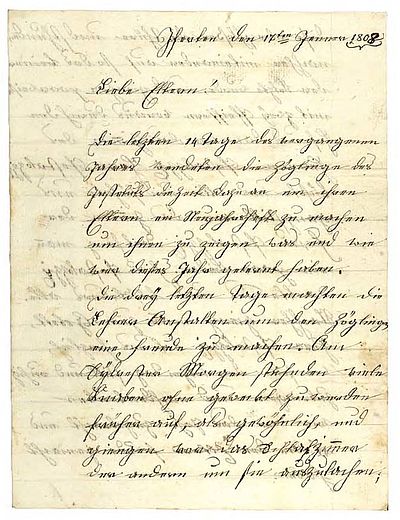 Iferten den 17ten Jenner 1808
Liebe Eltern!
Die letzten 14 Tage des vergangenen
Jahres wendeten die Zöglinge des
Instituts die Zeit dazu an um ihren
Eltern ein Neujahrsheft zu machen
um ihnen zu zeigen was und wie
wir dieses Jahr gelernt haben.
Die drey letzten Tage machten die
Lehrer Anstalten um den Zöglingen
eine Freude zu machen. Am
Sylvester Morgen stuhnden viele
Knaben ohne geweckt zu werden
früher auf, als gewöhnlich, und
giengen vor das Schlafzimmer
der andern um sie auszulachen;